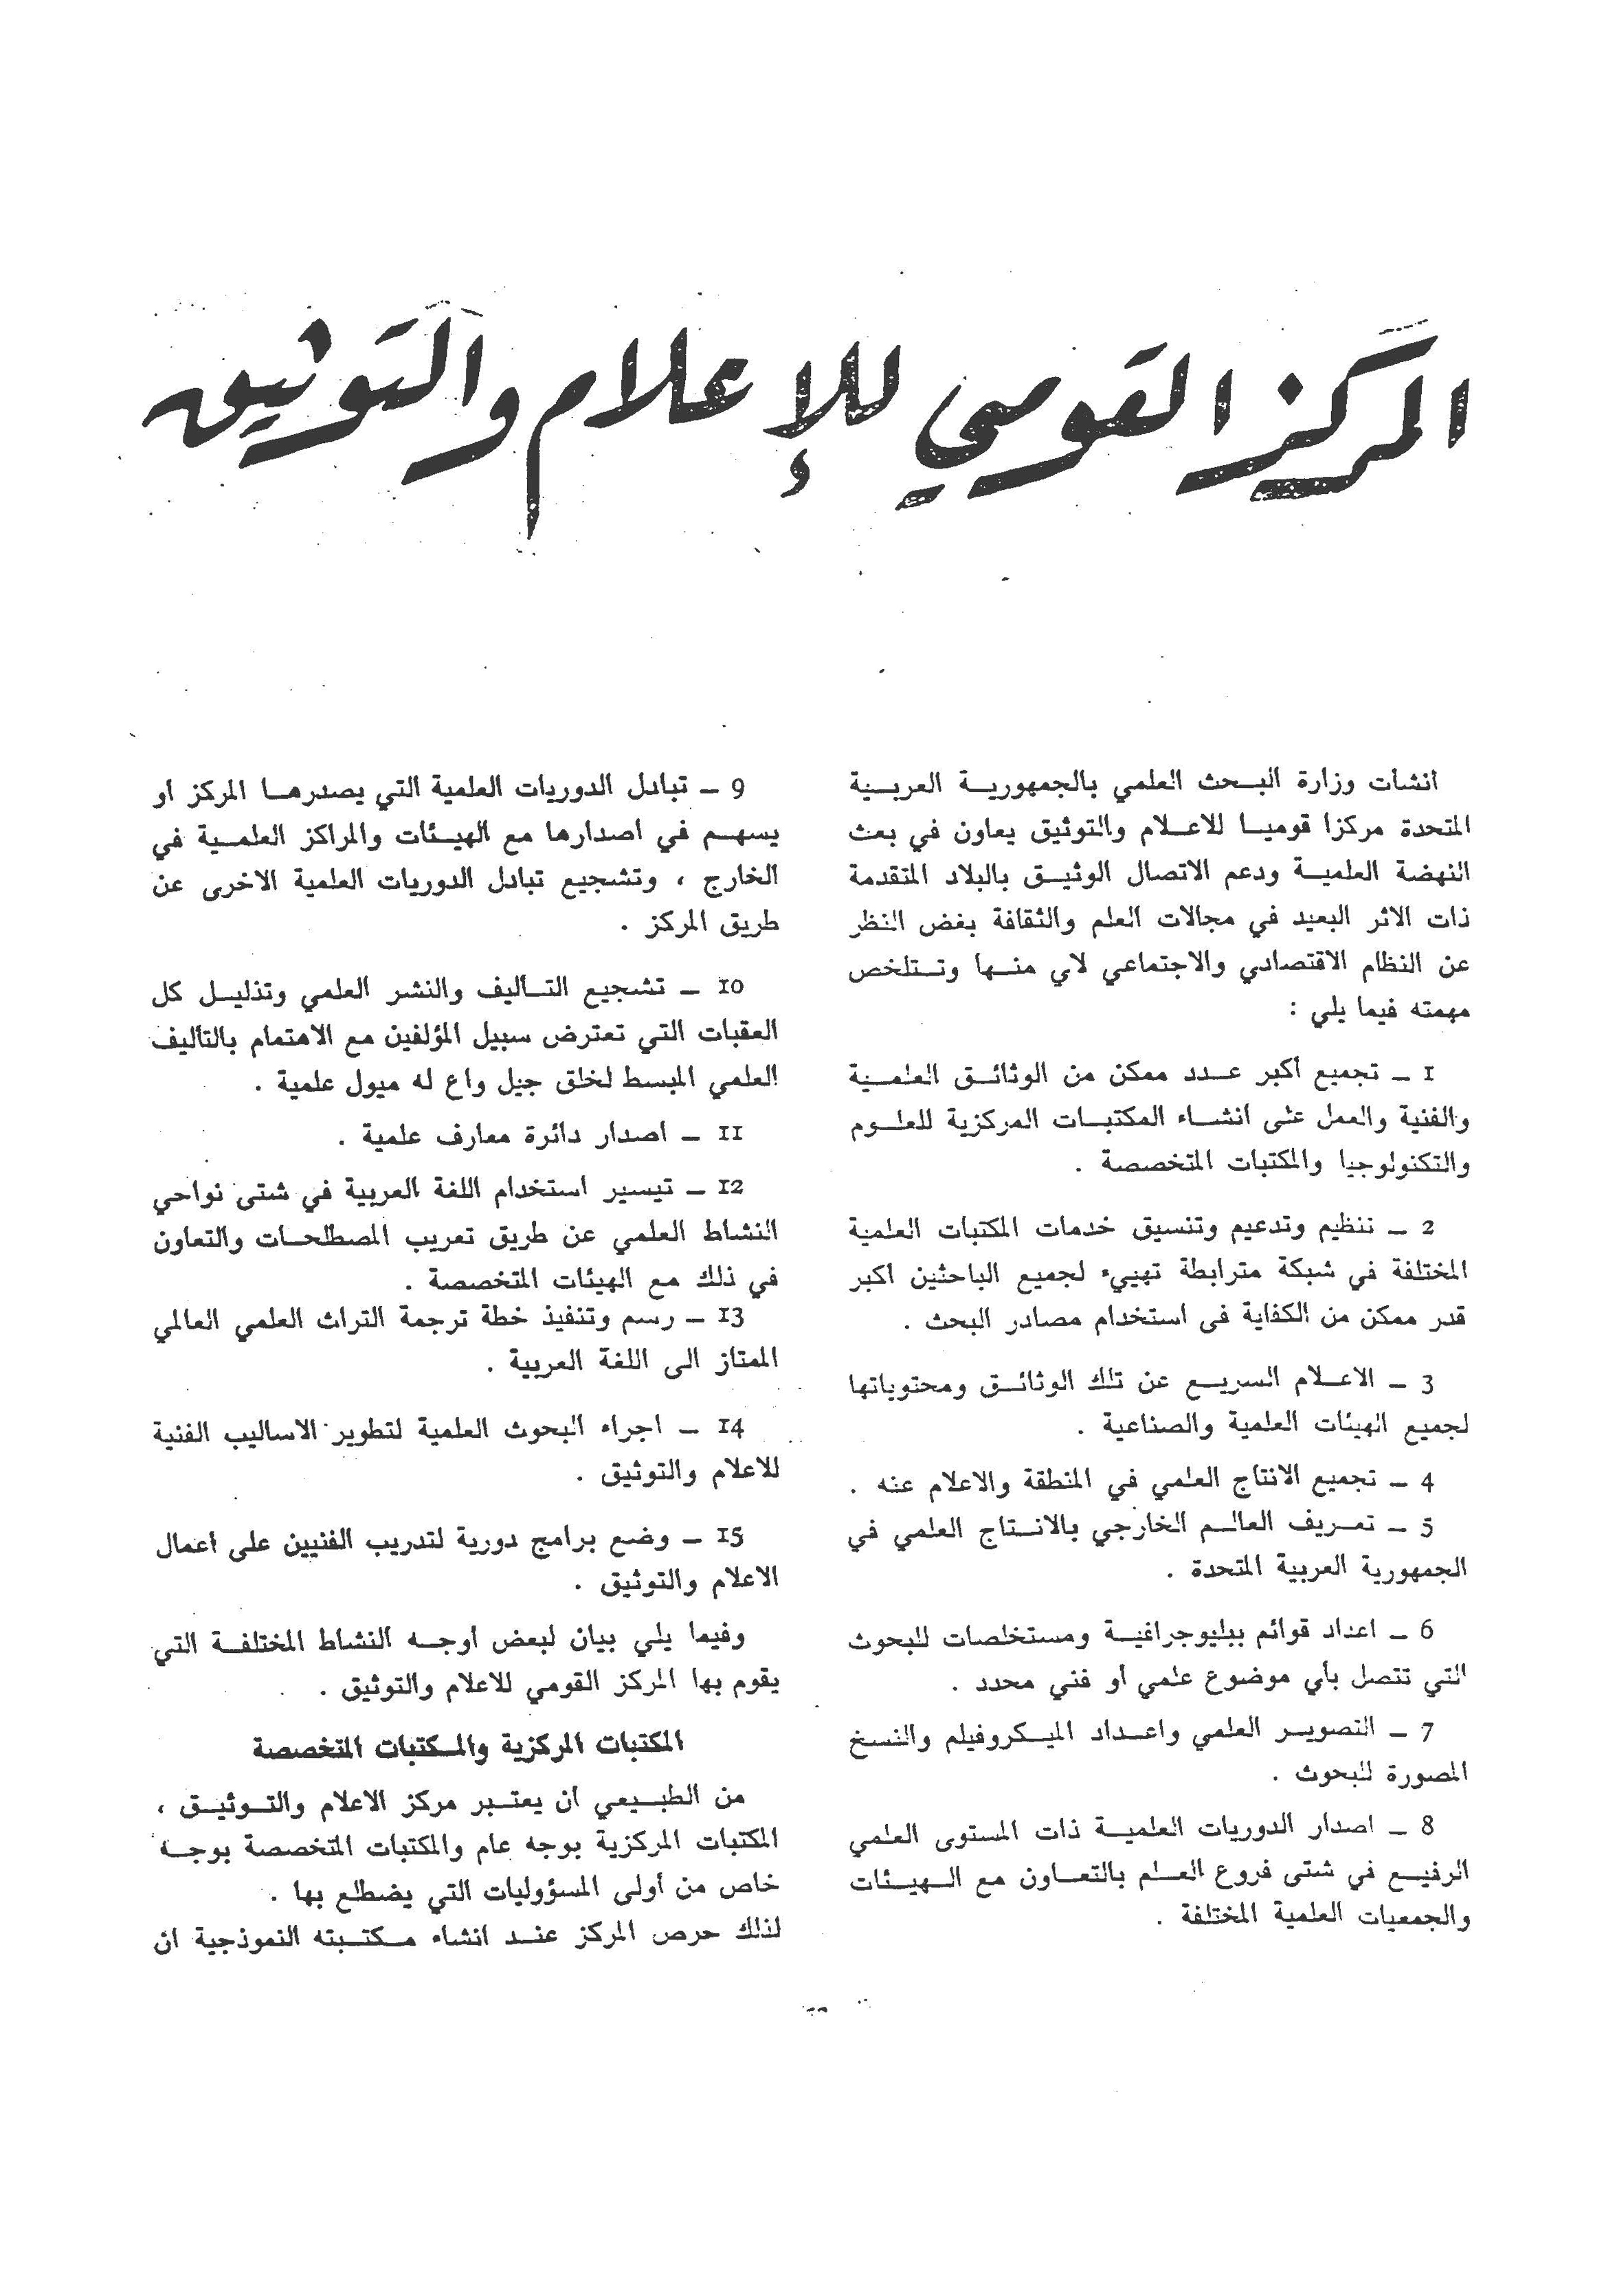 المركز القومي للإعلام والتوثيق
انشأت وزارة البحث العلمي بالجمهورية العربية
المتحدة مركزا قوميا للاعلام والتوثيق يعاون في بعث
النهضة العلمية ودعم الاتصال الوثيق بالبلاد المتقدمة
ذات الاثر البعيد في مجالات العلم والثقافة بغض النظر
عن النظام الاقتصادي والاجتماعي لاي منها وتتلخص
مهمته فيما يلي :
1 – تجميع أكبر عدد ممكن من الوثائق العلمية
والفنية والعمل على انشاء المكتبات المركزية للعلوم
والتكنولوجيا والمكتبات المتخصصة .
2 – تنظيم وتدعيم وتنسيق خدمات المكتبات العلمية
المختلفة في شبكة مترابطة تهييء لجميع الباحثين اكبر
قدر ممكن من الكفاية فى استخدام مصادر البحث .
3 – الاعلام السريع عن تلك الوثائق ومحتوياتها
لجميع الهيئات العلمية والصناعية .
4 – تجميع الانتاج العلمي في المنطقة والاعلام عنه .
5 – تعريف العالم الخارجي بالانتاج العلمي في
الجمهورية العربية المتحدة .
6 – اعداد قوائم ببليوجرافية ومستخلصات للبحوث
التي تتصل بأي موضوع علمي أو فني محدد .
7 – التصوير العلمي واعداد الميكروفيلم والنسخ
المصورة للبحوث .
8 – اصدار الدوريات العلمية ذات المستوى العلمي
الرفيع في شتى فروع العلم بالتعاون مع الهيئات
والجمعيات العلمية المختلفة .
9 – تبادل الدوريات العلمية التي يصدرها المركز أو
يسهم في اصدارها مع الهيئات والمراكز العلمية في
الخارج ، وتشجيع تبادل الدوريات العلمية الاخرى عن
طريق المركز .
10 – تشجيع التأليف والنشر العلمي وتذليل كل
العقبات التي تعترض سبيل المؤلفين مع الاهتمام بالتأليف
العلمي المبسط لخلق جيل واع له ميول علمية .
11 – اصدار دائرة معارف علمية .
12 – تيسير استخدام اللغة العربية في شتى نواحي
النشاط العلمي عن طريق تعريب المصطلحات والتعاون
في ذلك مع الهيئات المتخصصة .
13 – رسم وتنفيذ خطة ترجمة التراث العلمي العالمي
الممتاز الى اللغة العربية .
14 – اجراء البحوث العلمية لتطوير الاساليب الفنية
للاعلام والتوثيق .
15 – وضع برامج دورية لتدريب الفنيين على أعمال
الاعلام والتوثيق .
وفيما يلي بيان لبعض أوجه النشاط المختلفة التي
يقوم بها المركز القومي للاعلام والتوثيق .
المكتبات المركزية والمكتبات المتخصصة
من الطبيعي أن يعتبر مركز الاعلام والتوثيق ،
المكتبات المركزية بوجه عام والمكتبات المتخصصة بوجه
خاص من أولى المسؤوليات التي يضطلع بها .
لذلك حرص المركز عند انشاء مكتبته النموذجية ان